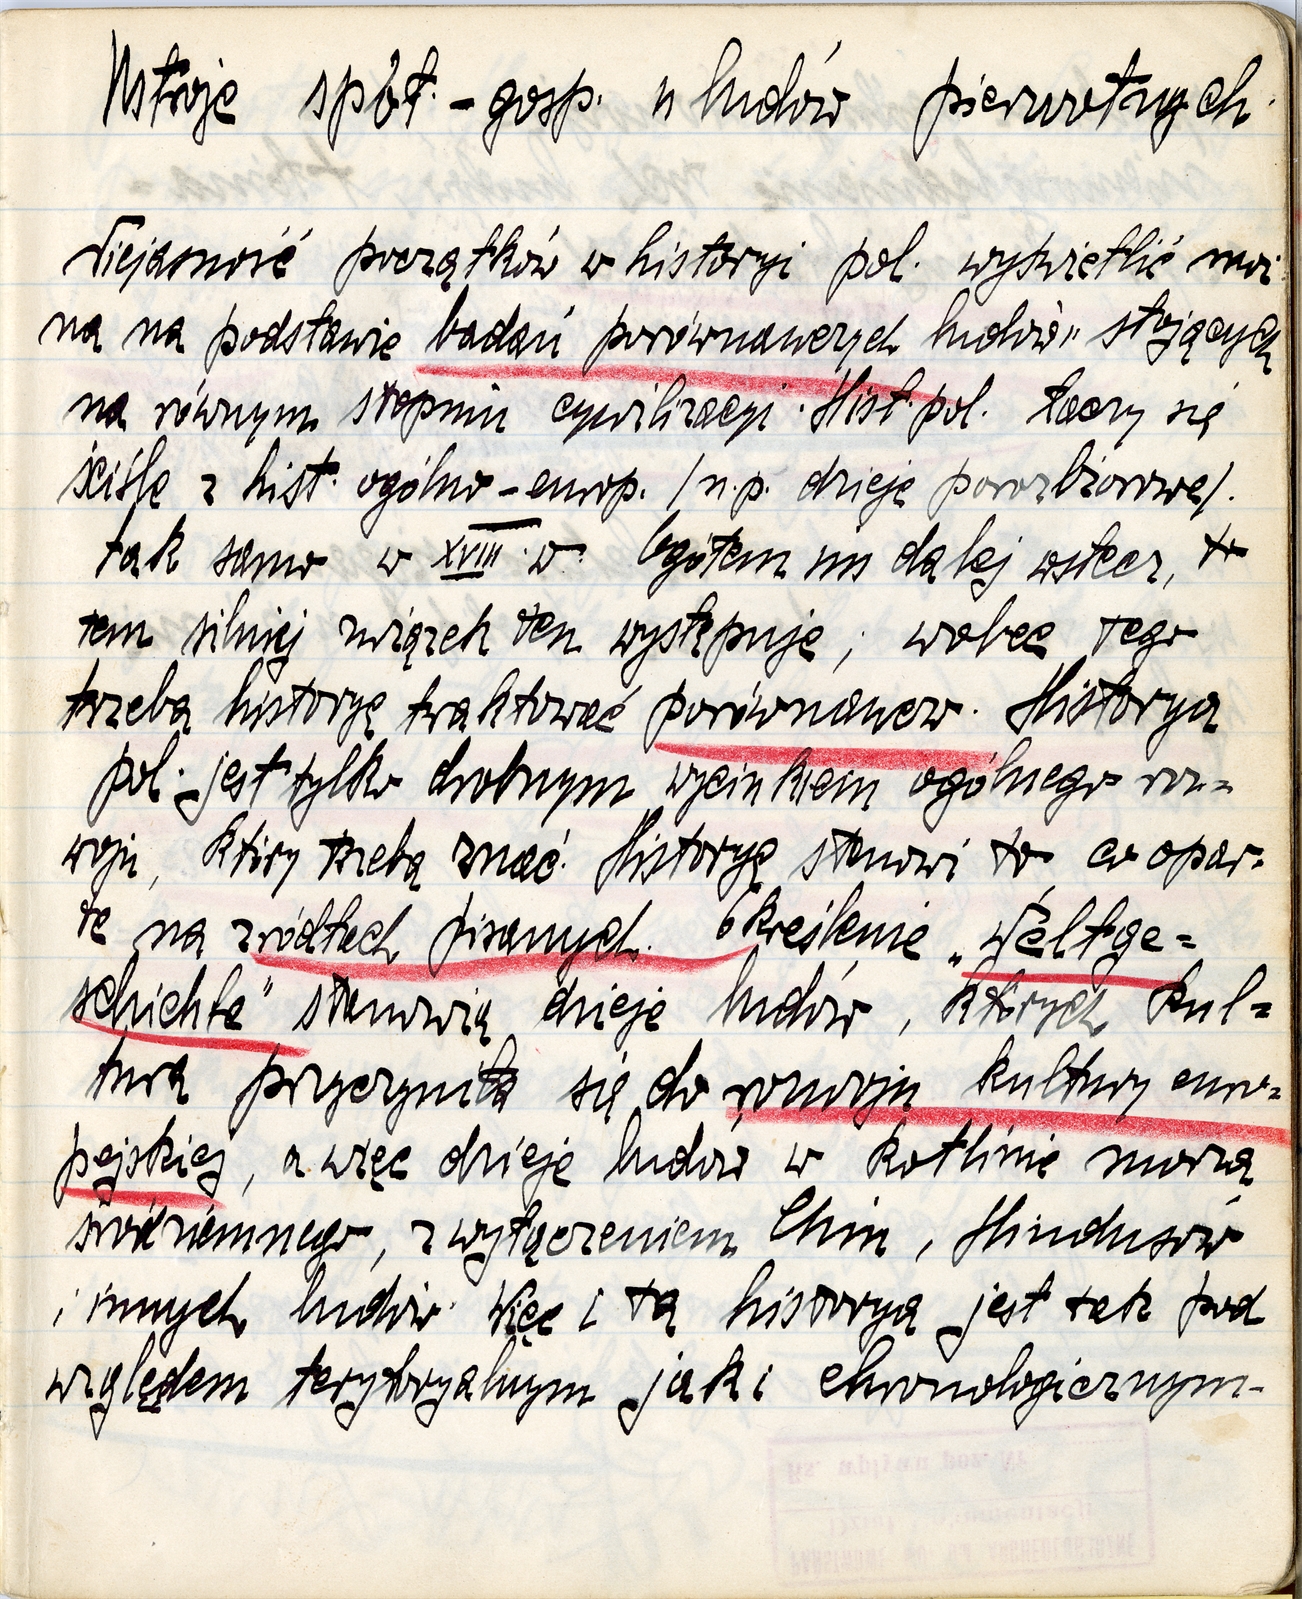 Ustroje społ. - gosp. u ludów pierwotnych.
Niejasność początków w historyi pol. wyświetlić moż
na na podstawie badań porównawczych ludów" stojących
na równym stopniu cywilizacyi. Hist. pol. łączy się
ściśle z hist. ogólno-europ. /n.p. dzieje porozbiorowe/.
tak samo w XVIII w. Ogółem im dalej wstecz, to
tem silniej związek ten występuje; wobec tego
trzeba historyę traktować porównawczo. Historya
pol. jest tylko drobnym wycinkiem ogólnego roz=
woju, który trzeba znać. Historyę stanowi to co opar=
te na źródłach pisanych. Określenie „Weltge=
schichte" stanowią dzieje ludów, których kul=
tura przyczyniła się do rozwoju kultury euro=
pejskiej, a więc dzieje ludów w kotlinie morza
śródziemnego, z wyłączeniem Chin, Hindusów
i innych ludów. Więc i ta historya jest tak pod
względem terytoryalnym jak i chronologicznym-